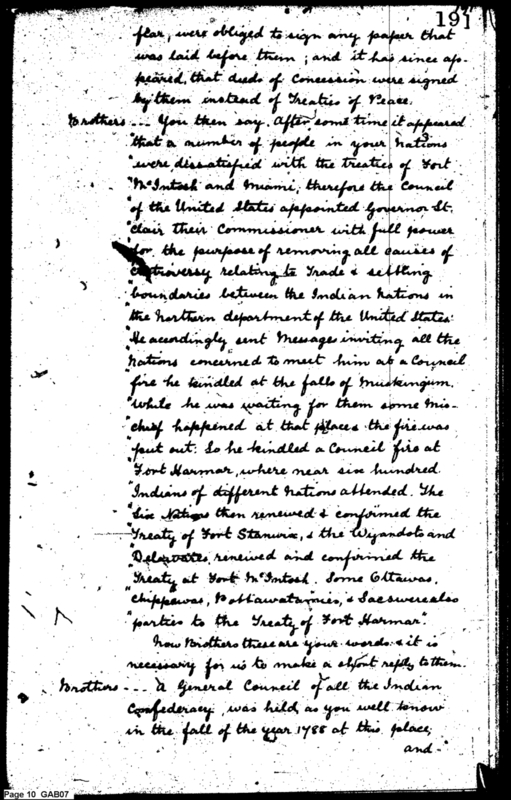 191
fear, were obliged to sign any paper that
was laid before them; and it has since ap-
peared, that deeds of Concession were signed
by them instead of Treaties of Peace.
Brothers --- You then say. After some time it appeared
"that a number of people in your Nations
"were dissatisfied with the treaties of Fort
"McIntosh and Miami, therefore the Council
"of the United States appointed Governor St.
"Clair their Commissioner with full power
"for the purpose of removing all causes of
"controversy relating to Trade & settling
"boundaries between the Indian Nations in
"the Northern department of the United States
"He accordingly sent Messages inviting all the
"Nations concerned to meet him at a Council
"fire he kindled at the falls of Muskingum.
"While he was waiting for them some Mis-
"chief happened at that place & the fire was
"put out. So he kindled a Council fire at
"Fort Harmar, where near six hundred
"Indians of different Nations attended. The
"Six Nations then renewed & confirmed the
"Treaty of Fort Stanwix, & the Wyandots and
"Delawares, reneived and confirmed the
"Treaty at Fort McIntosh. Some Ottawas,
"Chippewas, Pottawatamies, & Sacs were also
"parties to the Treaty of Fort Harmar".
Now Brothers these are your words & it is
necessary for us to make a short reply to them.
Brothers --- A General Council of all the Indian
Confederacy, was held, as you well know
in the fall of the year 1788 at this place;
and
Page 10 GAB07